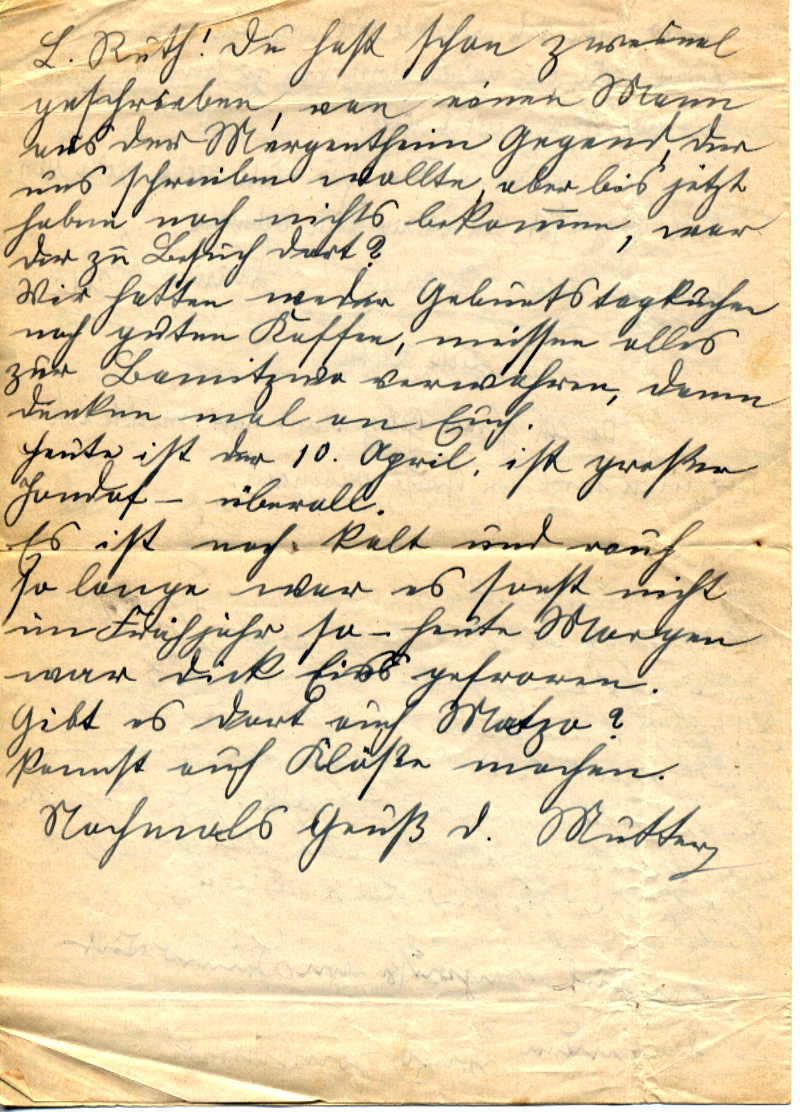 L. Ruth! Du hast schon zweimal
geschrieben, von einen Mann
aus der Mergentheim Gegend, der
uns schreiben wollte, aber bis jetzt
haben noch nichts bekommen, war
der zu Besuch dort?
Wir hatten weder Geburtstagkuchen
noch guten Kaffee, müssen alles
zur Bamitzwo verwahren, dann
denken mal an Euch.
Heute ist der 10. April, ist großer
Jondof – überall.
Es ist noch kalt und rauh
so lange war es sonst nicht
im Frühjahr so – heute Morgen
war dick Eis gefroren.
Gibt es dort auch Matzo?
kannst auch Klöße machen.
Nochmals Gruß d. Mutter